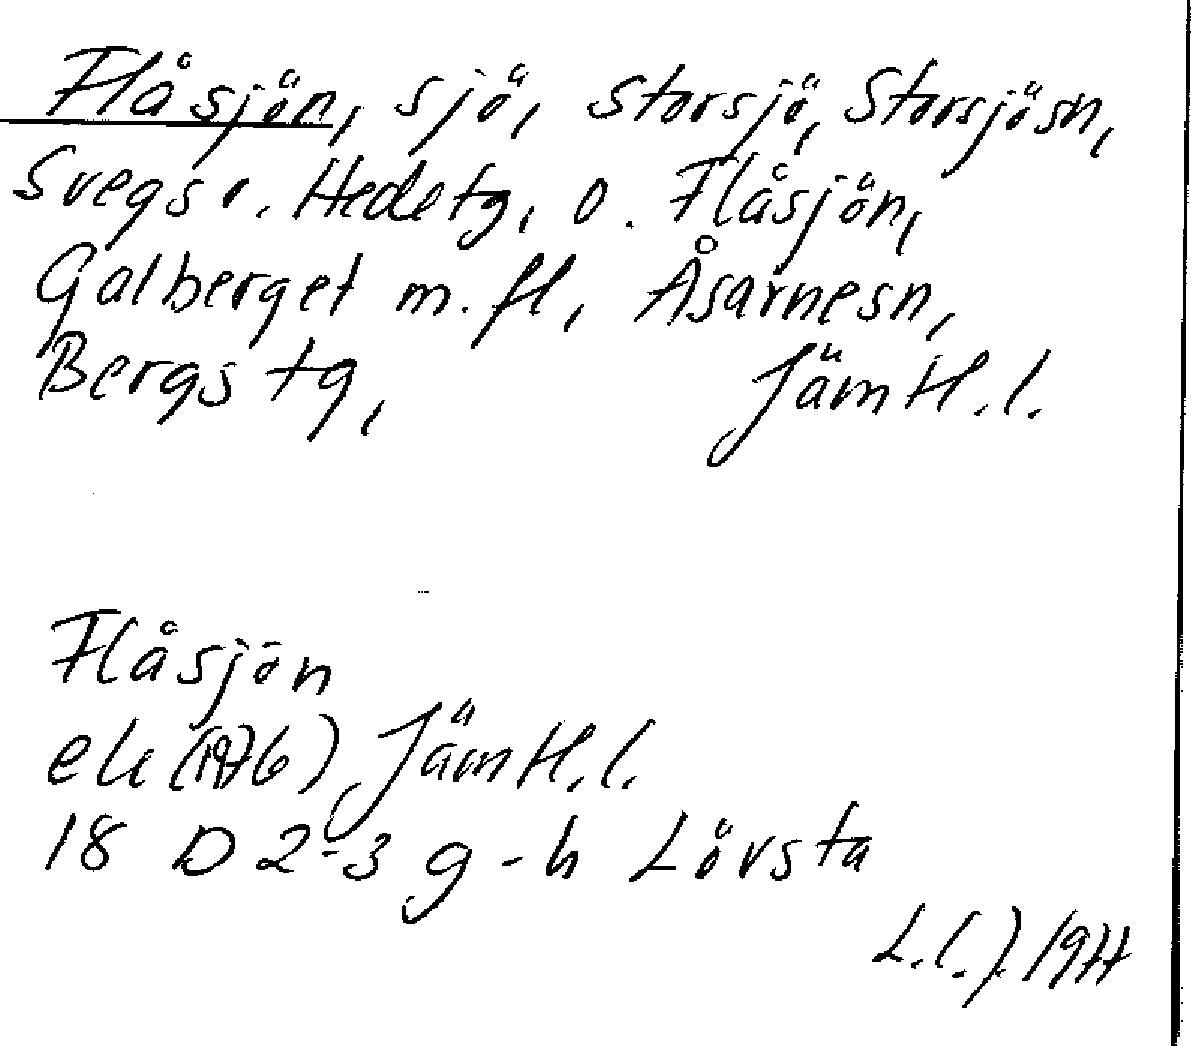 Flåsjön, sjö, Storsjö, Storsjösn,
Svegs o. Hede tg, o. Flåsjön,
Galberget m.fl, Åsarnesn,
Bergs tg, Jämtl.l.
Flåsjön
ek (1976) Jämtl.l.
18 D 2-3 g-h Lövsta
L.l.J. 1977